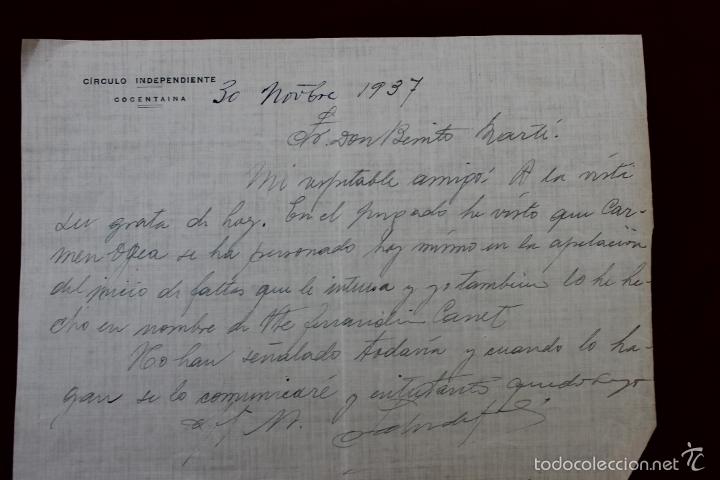 CÍRCULO INDEPENDIENTE
COCENTAINA
30 Novbre 1937
Sr. Don Benito Martí.
Mi respetable amigo: A la vista
su grata de hoy. En el juzgado he visto que Car-
men se ha personado hoy mismo en la apelación
del juicio de faltas que le interesa y yo tambien lo he he-
cho en nombre de Canet
No han señalado todavía y cuando lo ha-
gan se lo comunicaré y entretanto quedo suyo
todocoleccion
tc
en todocoleccion.net